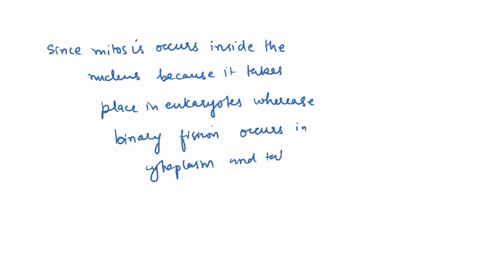 Since mitosis occurs inside the
nucleus because it takes
place in eukaryotes wherease
binary fission occurs in
cytoplasm and